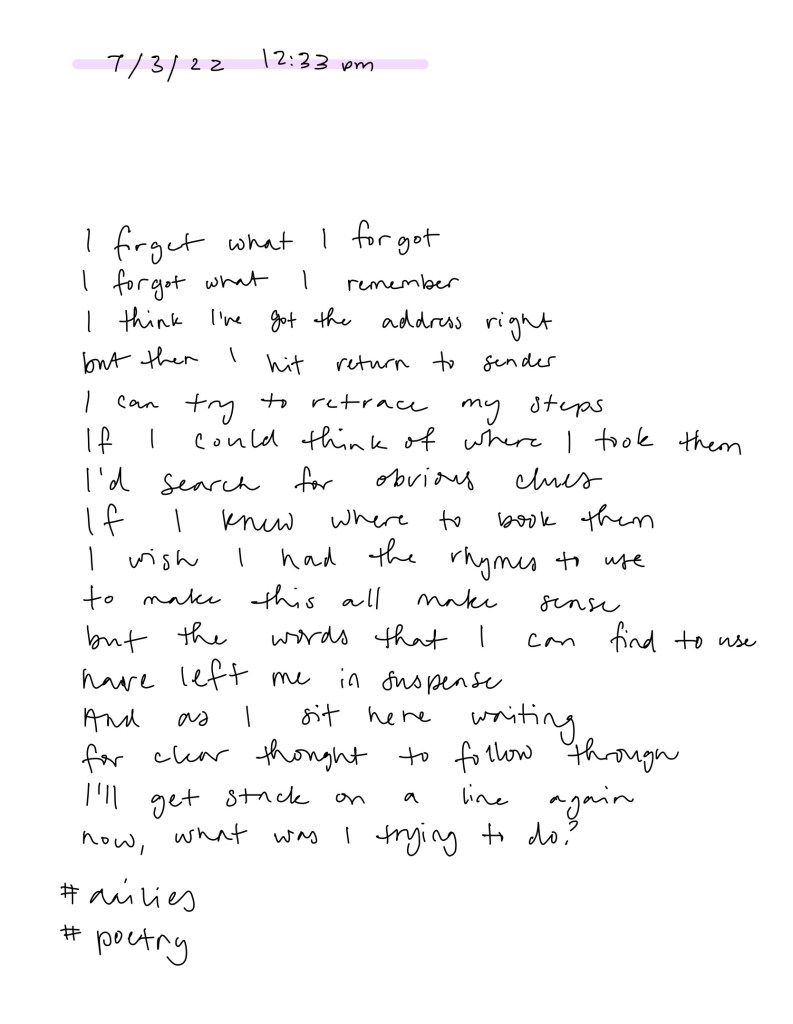 7/3/22 12:33 pm
I forget what I forgot
I forgot what I remember
I think I've got the address right
but then I hit return to sender
I can try to retrace my steps
If I could think of where I took them
I'd search for obvious clues
If I knew where to book them
I wish I had the rhymes to use
to make this all make sense
but the words that I can find to use
have left me in suspense
And as I sit here waiting
for clear thought to follow through
I'll get stuck on a line again
now, what was I trying to do?
#
# poetry